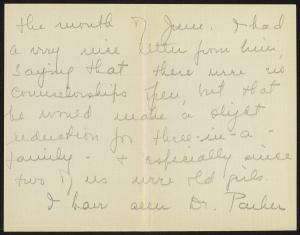 the month of June. I had
a very nice letter from him,
saying that there were no
Counselorships open, but that
he would make a slight
reduction for three-in-a-
family - & especially since
two of us were old girls.
I have seen Dr. Parker